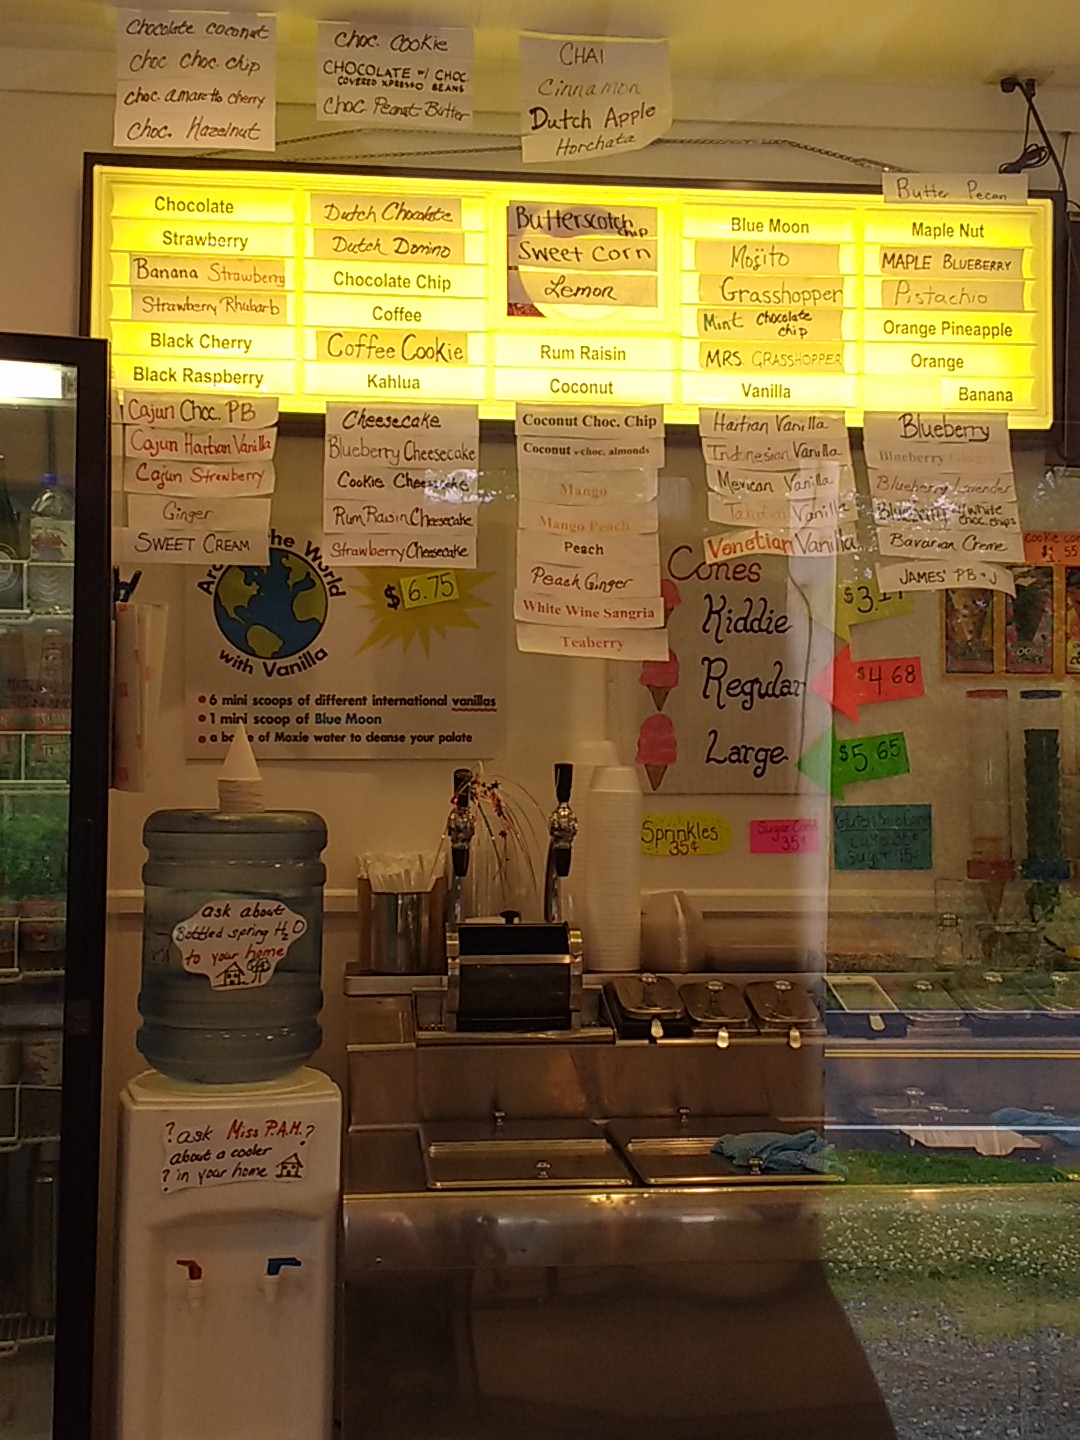 Chocolate coconut
choc choc chip
choc. amaretto cherry
choc. Hazelnut
choc. Cookie
CHOCOLATE w/ CHOC.
COVERED XPRESSO BEANS
choc. Peanut Butter
CHAI
Cinnamon
Dutch Apple
Horchata
Chocolate
Strawberry
Banana Strawberry
Strawberry Rhubarb
Black Cherry
Black Raspberry
Cajun Choc. PB
Cajun Haitian Vanilla
Cajun Strawberry
Ginger
SWEET CREAM
Dutch Chocolate
Dutch Domino
Chocolate Chip
Coffee
Coffee Cookie
Kahlua
Cheesecake
Blueberry Cheesecake
Cookie Cheesecake
Rum Raisin Cheesecake
Strawberry Cheesecake
Butterscotch
chip
Sweet Corn
Lemon
Rum Raisin
Coconut
Coconut Choc. Chip
Coconut w choc. almonds
Mango
Mango Peach
Peach
Peach Ginger
White Wine Sangria
Teaberry
Blue Moon
Mojito
Grasshopper
Mint Chocolate
chip
MRS. GRASSHOPPER
Vanilla
Haitian Vanilla
Indonesian Vanilla
Mexican Vanilla
Tahitian Vanilla
Venetian Vanilla
Butter Pecan
Maple Nut
MAPLE BLUEBERRY
Pistachio
Orange Pineapple
Orange
Banana
Blueberry
Blueberry Ginger
Blueberry Lavender
Blueberry w/ white
choc. chips
Bavarian Creme
JAMES' PB + J
Around the World
with Vanilla
$6.75
6 mini scoops of different international vanillas
1 mini scoop of Blue Moon
a of Moxie water to cleanse your palate
Cones
Kiddie
Regular
$4.68
Large
$5.65
Sprinkles
35¢
Sugar Cone
35¢
Gluten
Sugar
ask about
Bottled spring H2O
to your home
?ask Miss P.A.M.?
about a cooler
? in your home